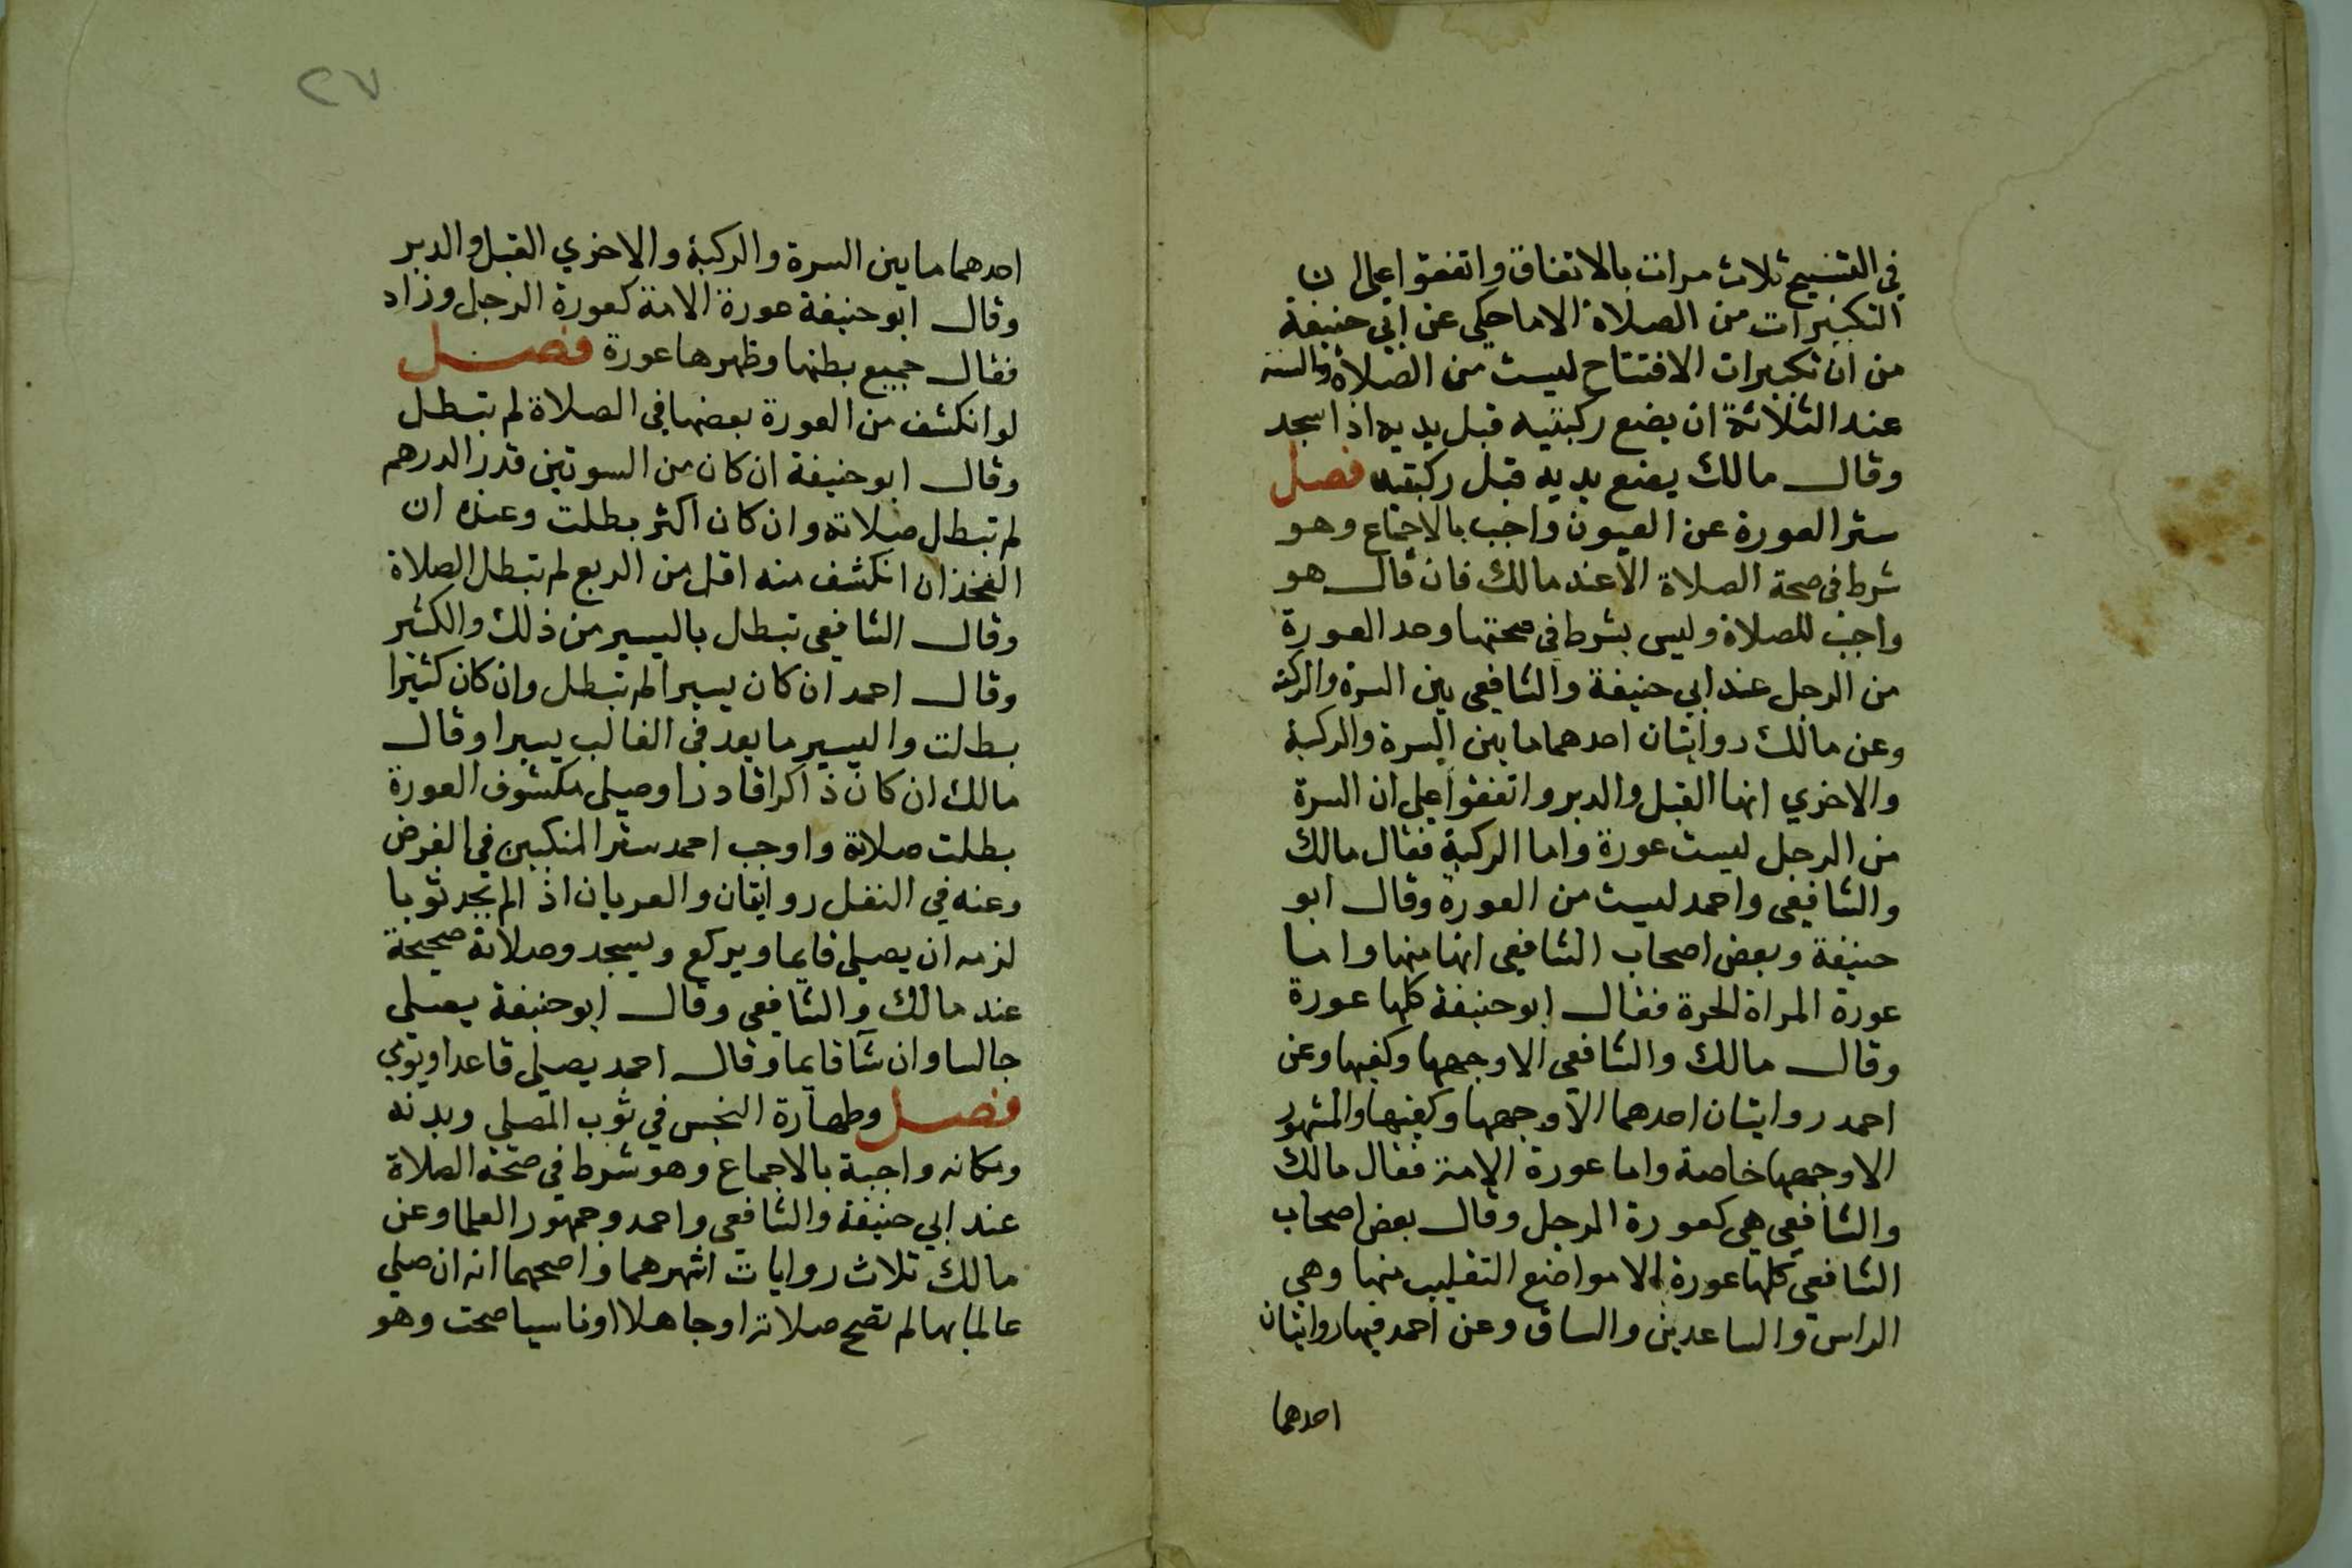 في التسبيح ثلاث مرات بالاتفاق واتفقوا على ان
التكبيرات من الصلاة الا ماحكي عن ابي حنيفة
من ان تكبيرات الافتتاح ليست من الصلاة والسنة
عند الثلاثة ان يضع ركبتيه قبل يديه اذا سجد
وقال مالك يضع يديه قبل ركبتيه فصل
ستر العورة عن العيون واجب بالاجماع وهو
شرط في صحة الصلاة الا عند مالك فان قال هو
واجب للصلاة وليس بشرط في صحتها وحد العورة
من الرجل عند ابي حنيفة والشافعي بين السرة والركبة
وعن مالك روايتان احدهما مابين السرة والركبة
والاخري انها القبل والدبر واتفقوا على ان السرة
من الرجل ليست عورة واما الركبة فقال مالك
والشافعي واحمد ليست من العورة وقال ابو
حنيفة وبعض اصحاب الشافعي انها منها واما
عورة المراة الحرة فقال ابو حنيفة كلها عورة
وقال مالك والشافعي الا وجهها وكفيها وعن
احمد روايتان احدهما الا وجهها وكفيها والمشهور
الا وجهها خاصة واما عورة الامة فقال مالك
والشافعي هي كعورة الرجل وقال بعض اصحاب
الشافعي كلها عورة الا مواضع التقليب منها وهي
الراس والساعدين والساق وعن احمد فيها روايتان
احدهما
٢٧
احدهما مابين السرة والركبة والاخري القبل والدبر
وقال ابو حنيفة عورة الامة كعورة الرجل وزاد
فقال جميع بطنها وظهرها عورة فصل
لو انكشف من العورة بعضها في الصلاة لم تبطل
وقال ابو حنيفة ان كان من السوتين قدر الدرهم
لم تبطل صلاته وان كان اكثر بطلت وعنده ان
الفخذ ان انكشف منه اقل من الربع لم تبطل الصلاة
وقال الشافعي تبطل باليسير من ذلك والكثير
وقال احمد ان كان يسيرا لم تبطل وان كان كثيرا
بطلت واليسير ما يعد في الغالب يسيرا وقال
مالك ان كان ذاكرا قادرا وصلى مكشوف العورة
بطلت صلاته واوجب احمد ستر المنكبين في الفرض
وعنه في النفل روايتان والعريان اذا لم يجد ثوبا
لزمه ان يصلي قايما ويركع ويسجد وصلاته صحيحة
عند مالك والشافعي وقال ابو حنيفة يصلي
جالسا وان شآ قايما وقال احمد يصلي قاعدا ويومي
فصل وطهارة النجس في ثوب المصلي وبدنه
ومكانه واجبة بالاجماع وهو شرط في صحة الصلاة
عند ابي حنيفة والشافعي واحمد وجمهور العلما وعن
مالك ثلاث روايات اشهرهما واصحهما انه ان صلي
عالما بها لم تصح صلاته او جاهلا او ناسيا صحت وهو